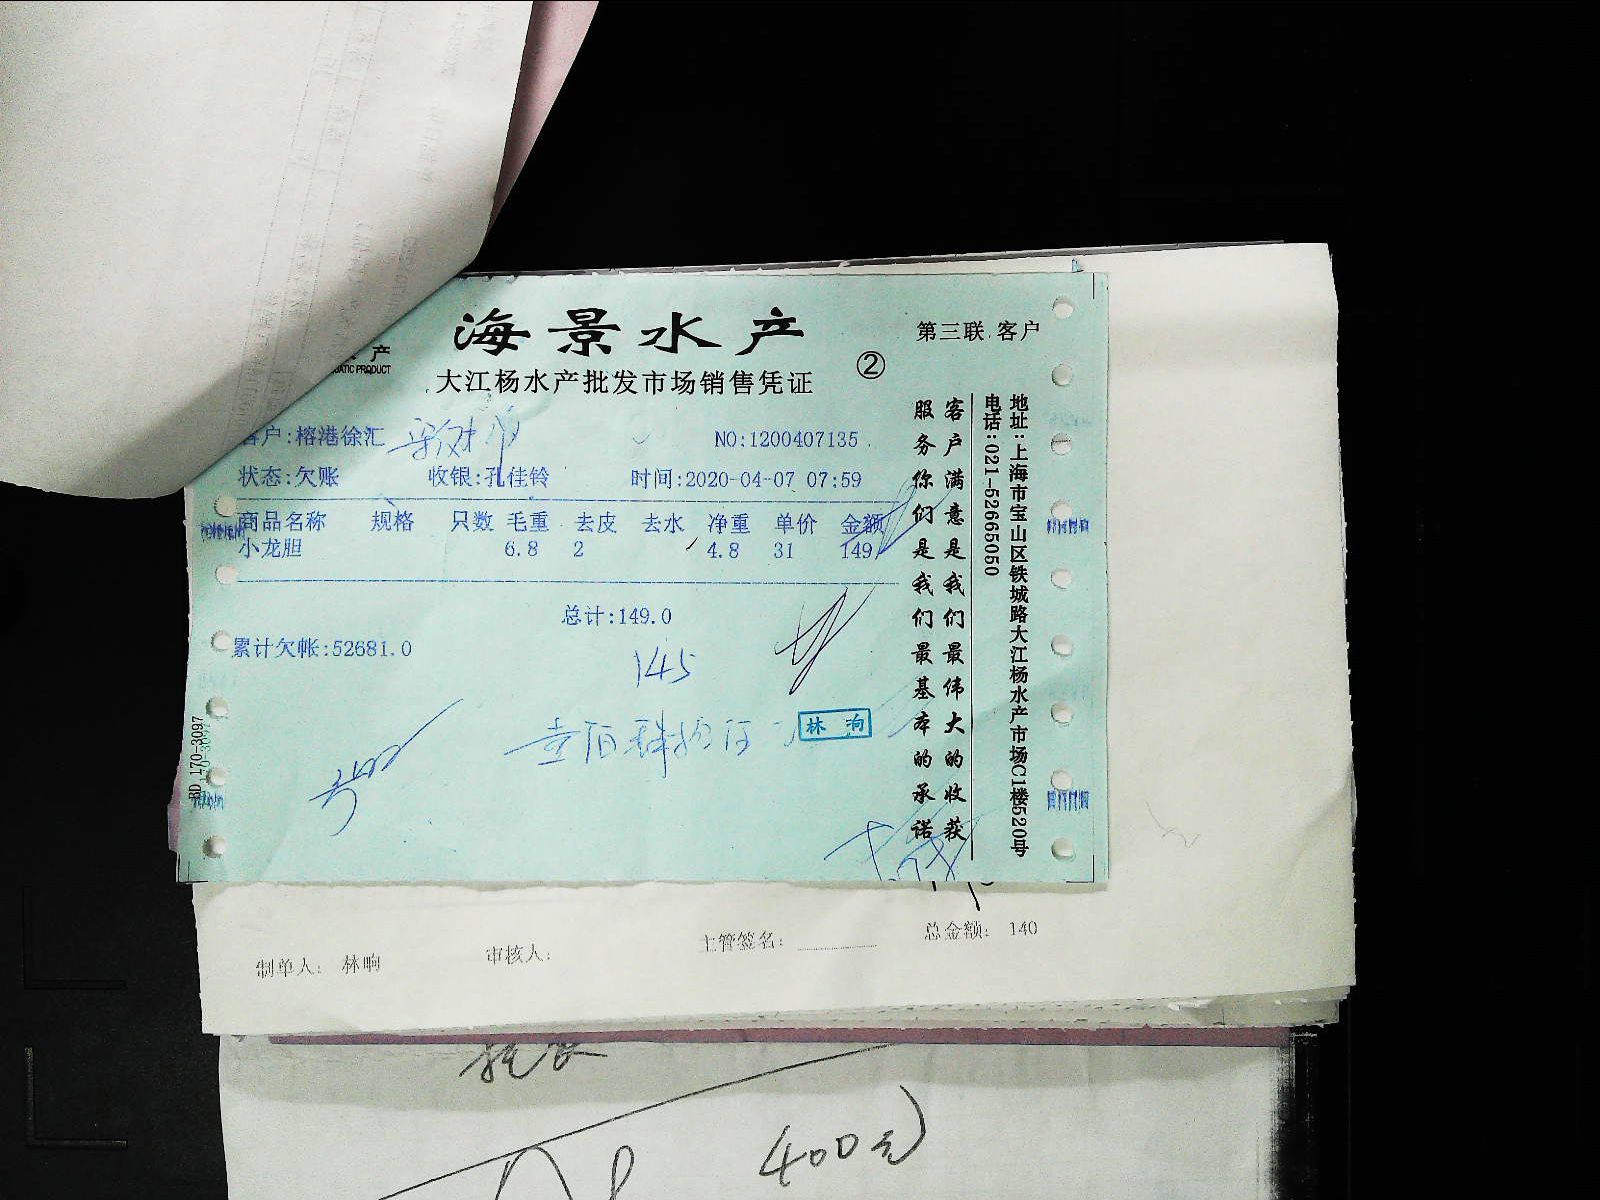 海景水产
第三联 客户
产
UATIC PRODUCT
大江杨水产批发市场销售凭证
②
客户:榕港徐汇
NO:1200407135
状态:欠账 收银:孔佳铃 时间:2020-04-07 07:59
商品名称 规格 只数 毛重 去皮 去水 净重 单价 金额
小龙胆 6.8 2 4.8 31 149
总计:149.0
累计欠帐:52681.0
145
壹佰肆拾伍
林响
客户满意是我们最伟大的收获
服务你们是我们最基本的承诺
地址:上海市宝山区铁城路大江杨水产市场C1楼520号
电话:021-52665050
BD 170-3097
制单人: 林响 审核人: 主管签名: 总金额: 140
400元